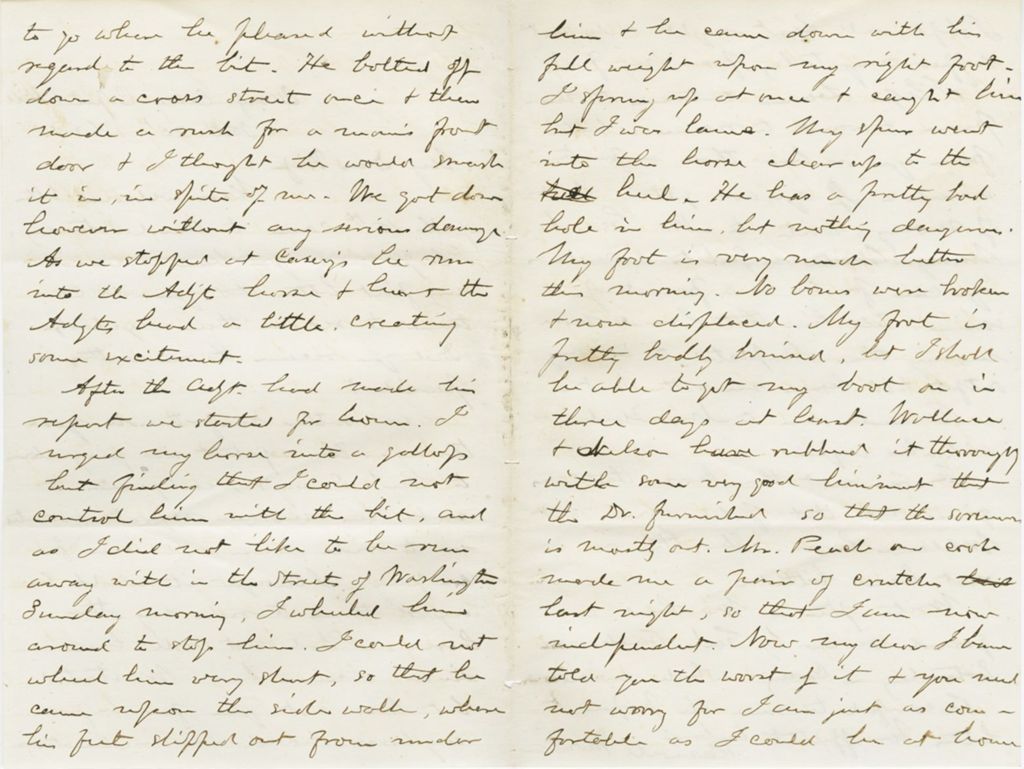 to go where he pleased without
regard to the bit. He bolted off
down a cross street once & then
made a rush for a man's front
door & I thought he would smash
it in, in spite of me. We got down
however without any serious damage.
As we stopped at Casey's he run
into the Adjt horse & hurt the
Adjts head a little, creating
some excitement.
After the Adjt. had made his
report we started for home. I
urged my horse into a gallop
but finding that I could not
control him with the bit, and
as I did not like to be run
away with in the street of Washington
Sunday morning, I wheeled him
around to stop him. I could not
wheel him very short, so that he
came upon the side walk, where
his feet slipped out from under
him & he came down with his
full weight upon my right foot.
I sprung up at once & caught him
but I was lame. My spur went
into the horse clear up to the
heel. He has a pretty bad
hole in him, but nothing dangerous.
My foot is very much better
this morning. No bones were broken
& none displaced. My foot is
pretty badly bruised, but I shall
be able to get my boot on in
three days at least. Wallace
& Nelson have rubbed it thoroughly
with some very good liniment that
the Dr. furnished so that the soreness
is mostly out. Mr. Peach our cook
made me a pair of crutches
last night, so that I am now
independent. Now my dear I have
told you the worst of it & you need
not worry for I am just as com-
fortable as I could be at home